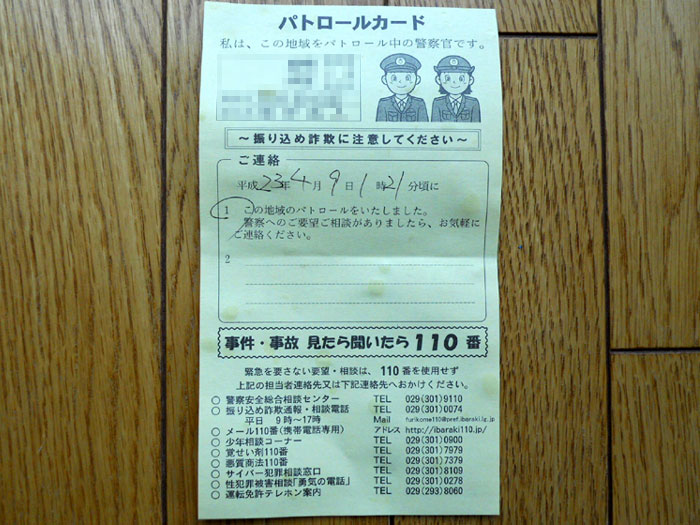 パトロールカード
私は、この地域をパトロール中の警察官です。
～振り込め詐欺に注意してください～
ご連絡
平成23年4月9日1時21分頃に
1 この地域のパトロールをいたしました。
警察へのご要望ご相談がありましたら、お気軽に
ご連絡ください。
2
事件・事故 見たら聞いたら110番
緊急を要さない要望・相談は、110番を使用せず
上記の担当者連絡先又は下記連絡先へおかけください。
○ 警察安全総合相談センター TEL 029(301)9110
○ 振り込め詐欺通報・相談電話 TEL 029(301)0074
平日 9時～17時 Mail furikome110@pref.ibaraki.lg.jp
○ メール110番(携帯電話専用) アドレス http://ibaraki110.jp/
○ 少年相談コーナー TEL 029(301)0900
○ 覚せい剤110番 TEL 029(301)7979
○ 悪質商法110番 TEL 029(301)7379
○ サイバー犯罪相談窓口 TEL 029(301)8109
○ 性犯罪被害相談「勇気の電話」 TEL 029(301)0278
○ 運転免許テレホン案内 TEL 029(293)8060